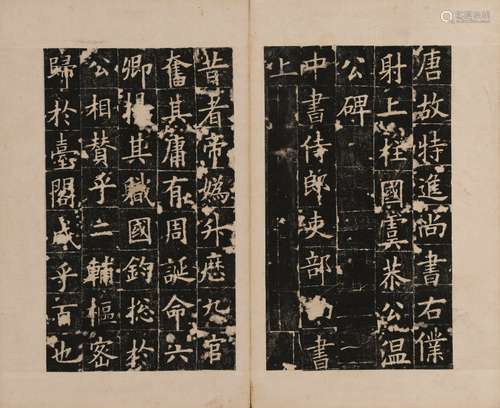 唐故特進尚書右僕
射上柱國虞恭公温
公碑
中書侍郎吏部 書
上
昔者帝媯升歷九官
奮其庸有周誕命六
卿揚其職國鈞總於
公相贊乎二輔樞密
歸於臺閣成乎百也